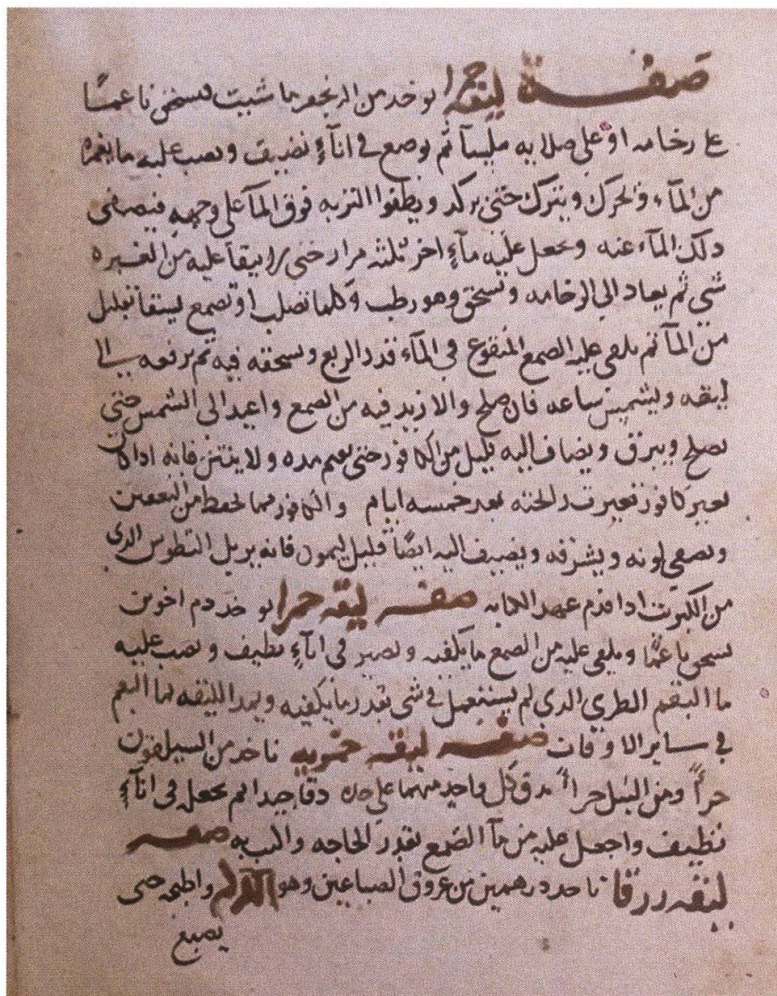 صفة ليقة حمرا يوخد من الزنجفر ما شيت فيسحق ناعمًا
على رخامه او على صلايه مليآ ثم يوضع في اناءٍ نضيف ويصب عليه ما يغمره
من الماء والحرك ويترك حتى يركد ويطفوا التربه فوق الماء على وجهه فيصفى
دلك الماء عنه ويجعل عليه ماءٍ اخر ثلثه مرار حتى لا يبقا عليه من الغبره
شى ثم يعاد الى الرخامه ويسحق وهو رطب وكلما تصلب او تصمع يسقا بقليل
من الماء ثم يلقى عليه الصمغ المنقوع في الماء قدر الربع ويسحقه فيه ثم يرفعه الى
ليقه ويشمس ساعه فان صلح والا زيد فيه من الصمغ واعيد الى الشمس حتى
يصلح ويبرق ويضاف اليه قليل من الكافور حتى يقيم مده ولا ينتن فانه ادا كان
بغير كافور تغيرت رالحته بعد خمسه ايام والكافور مما يحفظ من التعفين
ويصفى لونه ويشرقه ويضيف اليه ايضًا قليل ليمون فانه يزيل التطوس الدى
من الكبريت ادا قدم عهد الكتابه صفه ليقه حمرا يوخد دم اخوين
يسحق ناعمًا ويلقى عليه من الصمغ ما يكفيه ويصير في اناءٍ نظيف ويصب عليه
ما البقم الطري الدى لم يستعمل في شى بقدر ما يكفيه ويمد الليقه بما البقم
في ساير الاوقات صفه ليقه خمريه ناخد من السيلقون
جزأً ومن النيل جزأً يدق كل واحد منهما على حده دقا جيدا ثم يجعله في اناءٍ
نظيف واجعل عليه من مآ الصمغ بقدر الحاجه واكتب به صفه
ليقه زرقا ناخد درهمين من عروق الصباعين وهو الكركم واطبخه حتى
يصبغ